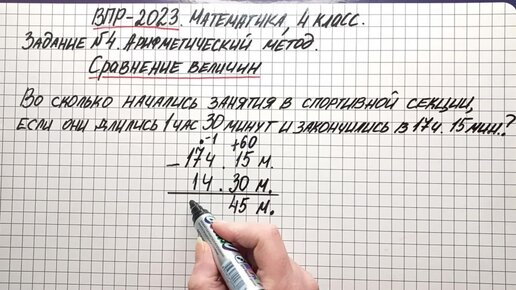 ВПР-2023. МАТЕМАТИКА, 4 КЛАСС.
ЗАДАНИЕ №4. АРИФМЕТИЧЕСКИЙ МЕТОД.
СРАВНЕНИЕ ВЕЛИЧИН
ВО СКОЛЬКО НАЧАЛИСЬ ЗАНЯТИЯ В СПОРТИВНОЙ СЕКЦИИ,
ЕСЛИ ОНИ ДЛИЛИСЬ 1 ЧАС 30 МИНУТ И ЗАКОНЧИЛИСЬ В 17Ч. 15 МИН?
•-1 +60
- 17Ч. 15 М.
1Ч. 30 М.
45 М.